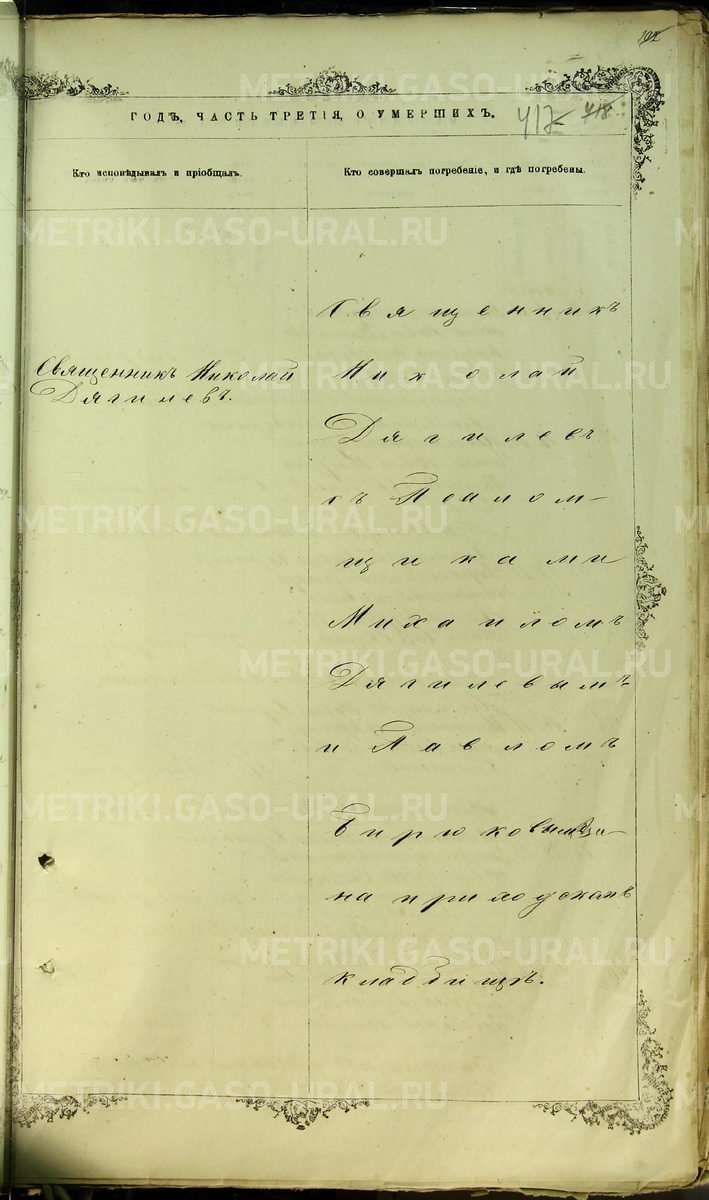 ГОДЪ, ЧАСТЬ ТРЕТІЯ, О УМЕРШИХЪ.
417 418
Кто исповѣдывалъ и пріобщалъ.
Кто совершалъ погребеніе, и гдѣ погребены.
Священникъ Николай
Дягилевъ.
Священникъ
Николай
Дягилевъ
съ Псалом-
щиками
Михаиломъ
Дягилевымъ
и Павломъ
Бирюковымъ
на приходскомъ
кладбищѣ.
METRIKI.GASO-URAL.RU
METRIKI.GASO-URAL.RU
METRIKI.GASO-URAL.RU
METRIKI.GASO-URAL.RU
METRIKI.GASO-URAL.RU
METRIKI.GASO-URAL.RU
METRIKI.GASO-URAL.RU
METRIKI.GASO-URAL.RU